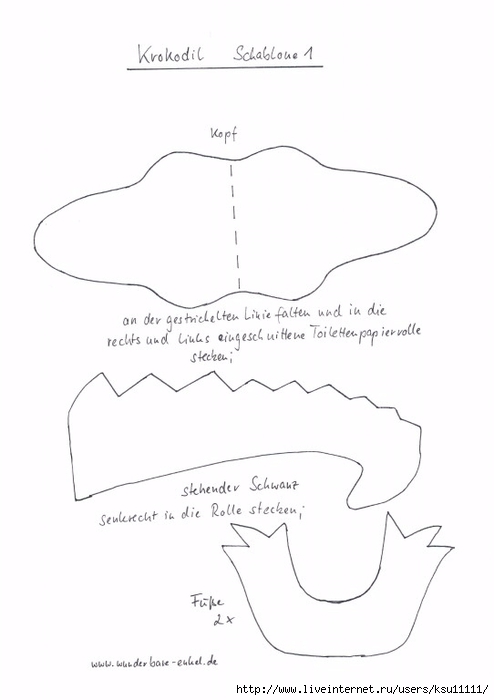 Krokodil Schablone 1
Kopf
an der gestrichelten Linie falten und in die
rechts und links eingeschnittene Toilettenpapierrolle
stecken;
stehender Schwanz
senkrecht in die Rolle stecken;
Füße
2x
www.wunderbare-enkel.de
http://www.liveinternet.ru/users/ksu11111/